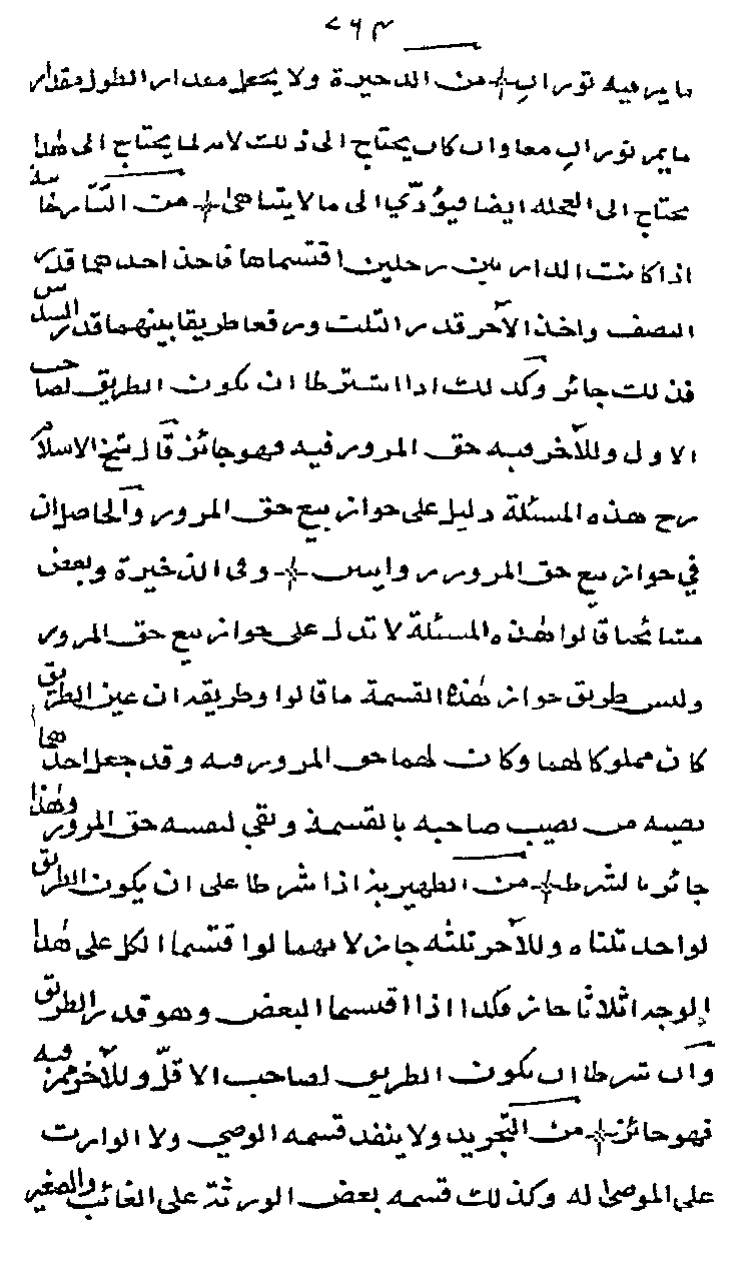 ٧٦٣
ما يمر فيه ثوران من الذخيرة ولا يجعل مقدار الطول مقدار
ما يمر ثوران معا وان كان يحتاج الى ذلك لانه لما يحتاج الى هٰذا
يحتاج الى العجلة ايضا فيؤدّي الى ما لا يتناهى من التتارخانية
اذا كانت الدار بين رجلين اقتسماها فاخذ احدهما قدر
النصف واخذ الآخر قدر الثلث ورفعا طريقا بينهما قدر السدس
فذلك جائز وكذلك اذا اشترطا ان يكون الطريق لصاحب
الاول وللآخر فيه حق المرور فيه فهو جائز قال شيخ الاسلام
رح هذه المسئلة دليل على جواز بيع حق المرور والحاصل ان
في جواز بيع حق المرور روايتين وفى الذخيرة وبعض
مشائخنا قالوا هٰذه المسئلة لا تدل على جواز بيع حق المرور
وليس طريق جواز هٰذه القسمة ما قالوا وطريقه ان عين الطريق
كان مملوكا لهما وكان لهما حق المرور فيه وقد جعل احدهما
نصيبه من نصيب صاحبه بالقسمة وبقي لنفسه حق المرور وهٰذا
جائز بالشرط من الظهيرية اذا شرطا على ان يكون الطريق
لواحد ثلثاه وللآخر ثلثه جاز لانهما لو اقتسما الكل على هٰذا
الوجه اثلاثا جاز فكذا اذا اقتسما البعض وهو قدر الطريق
وان شرطا ان يكون الطريق لصاحب الاقلّ وللآخر ممر فيه
فهو جائز من التجريد ولا ينفد قسمه الوصي ولا الوارث
على الموصىٰ له وكذلك قسمه بعض الورثة على الغائب والصغير